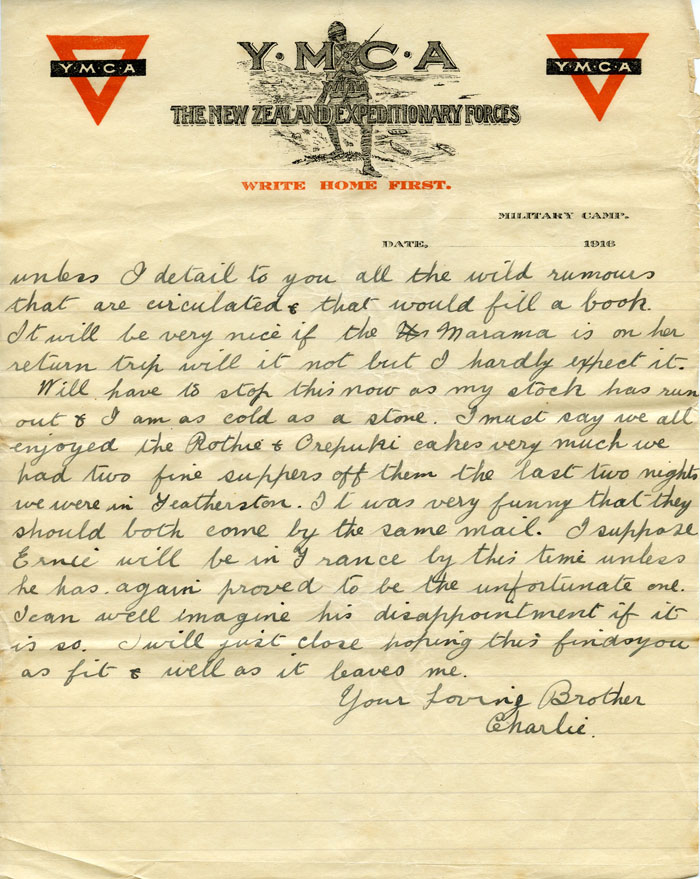 Y·M·C·A
Y·M·C·A
Y·M·C·A
THE NEW ZEALAND EXPEDITIONARY FORCES
WRITE HOME FIRST.
MILITARY CAMP.
DATE, 1916
unless I detail to you all the wild rumours
that are circulated & that would fill a book.
It will be very nice if the Marama is on her
return trip will it not but I hardly expect it.
Will have to stop this now as my stock has run
out & I am as cold as a stone. I must say we all
enjoyed the Rothie & Orepuki cakes very much we
had two fine suppers off them the last two nights
we were in Featherston. It was very funny that they
should both come by the same mail. I suppose
Ernie will be in France by this time unless
he has again proved to be the unfortunate one.
I can well imagine his disappointment if it
is so. I will just close hoping this finds you
as fit & well as it leaves me.
Your Loving Brother
Charlie.